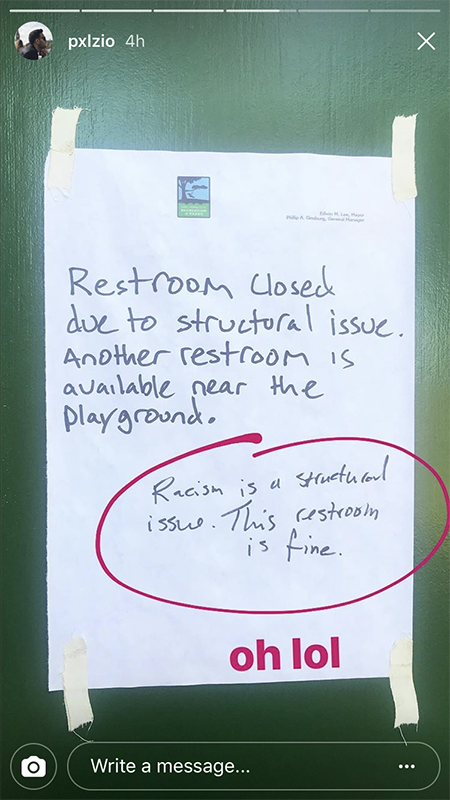 pxlzio 4h
Edwin M. Lee, Mayor
Philip A. Ginsburg, General Manager
Restroom Closed
due to structural issue.
Another restroom is
available near the
playground.
Racism is a structural
issue. This restroom
is fine.
oh lol
Write a message...